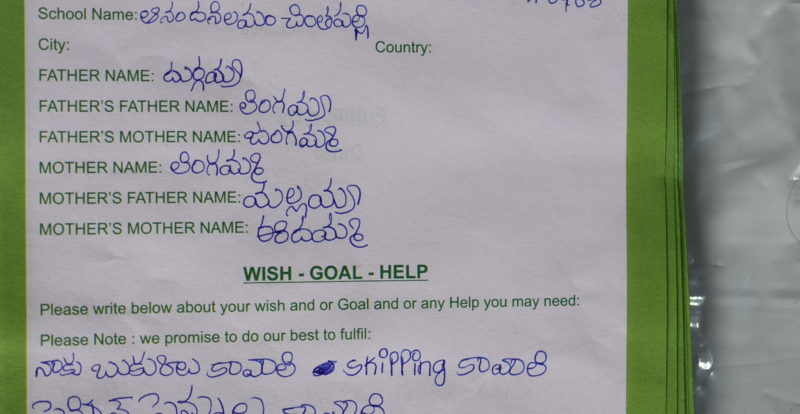 School Name: ఆనందనిలయం చింతపల్లి
City: Country:
FATHER NAME: దుర్గయ్య
FATHER'S FATHER NAME: లింగయ్య
FATHER'S MOTHER NAME:
MOTHER NAME: లింగమ్మ
MOTHER'S FATHER NAME: యల్లయ్య
MOTHER'S MOTHER NAME:
WISH - GOAL - HELP
Please write below about your wish and or Goal and or any Help you may need:
Please Note : we promise to do our best to fulfil:
నాకు బుకులు కావాలి skipping కావాలి
కావాలి